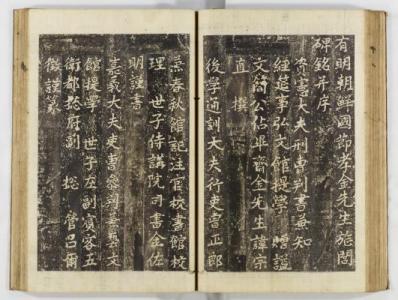 有明朝鮮國節孝金先生旌閭
碑銘幷序
資憲大夫刑曹判書兼知
經筵事弘文館提學 贈諡
文簡公佔畢齋金先生諱宗
直 撰
後學通訓大夫行吏曹正郞
兼春秋館記注官校書館校
理 世子侍講院司書金佐
明謹書
嘉義大夫吏曹參判兼藝文
館提學 世子左副賓客五
衛都摠府副 摠 管呂爾
徵謹篆